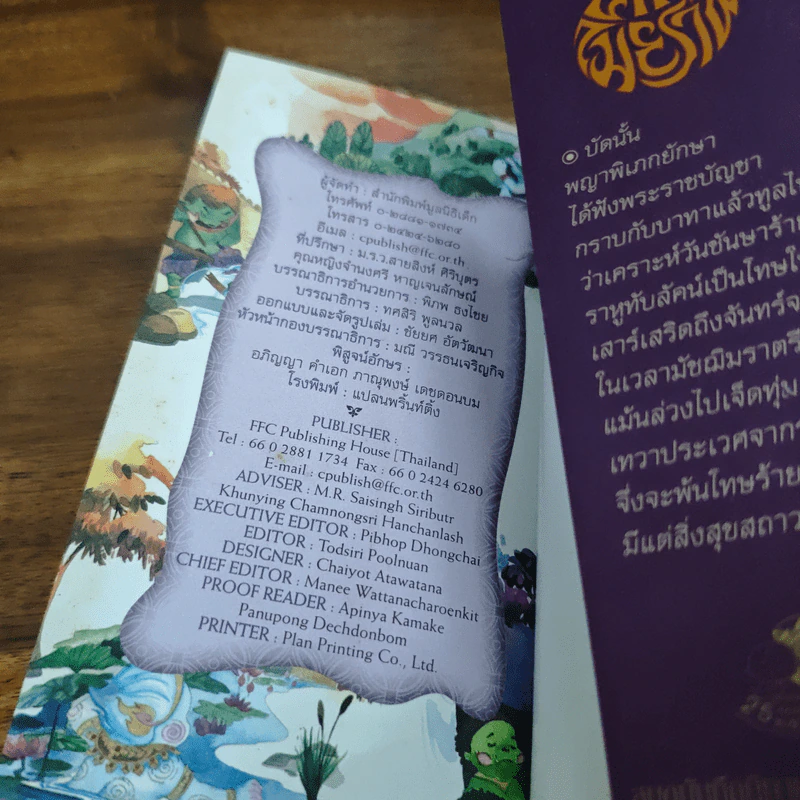 ผู้จัดทำ : สำนักพิมพ์มูลนิธิเด็ก
โทรศัพท์ ๐-๒๘๘๑-๑๗๓๔
โทรสาร ๐-๒๔๒๔-๖๒๘๐
อีเมล : cpublish@ffc.or.th.
ที่ปรึกษา : ม.ร.ว.สายสิงห์ ศิริบุตร
คุณหญิงจำนงศรี หาญเจนลักษณ์
บรรณาธิการอำนวยการ : พิภพ ธงไชย
บรรณาธิการ : ทศสิริ พูลนวล
ออกแบบและจัดรูปเล่ม : ชัยยศ อัตวัฒนา
หัวหน้ากองบรรณาธิการ : มณี วรรธนเจริญกิจ
พิสูจน์อักษร :
อภิญญา คำเอก ภาณุพงษ์ เดชดอนบม
โรงพิมพ์ : แปลนพริ้นท์ติ้ง
PUBLISHER :
FFC Publishing House [Thailand]
Tel : 66 0 2881 1734 Fax : 66 0 2424 6280
E-mail : cpublish@ffc.or.th
ADVISER : M.R. Saisingh Siributr
Khunying Chamnongsri Hanchanlash
EXECUTIVE EDITOR : Pibhop Dhongchai
EDITOR : Todsiri Poolnuan
DESIGNER : Chaiyot Atawatana
CHIEF EDITOR : Manee Wattanacharoenkit
PROOF READER : Apinya Kamake
Panupong Dechdonbom
PRINTER : Plan Printing Co., Ltd.
บัดนั้น
พญาพิเภกยักษา
ได้ฟังพระราชบัญชา
กราบกับบาทาแล้วทูลไ
ว่าเคราะห์วันชันษาร้า
ราหูทับลัคน์เป็นโทษใ
เสาร์เสริดถึงจันทร์จ
ในเวลามัชฌิมราตรี
แม้นล่วงไปเจ็ดทุ่ม
เทวาประเวศจาก
จึงจะพ้นโทษร้าย
มีแต่สิ่งสุขสถาว